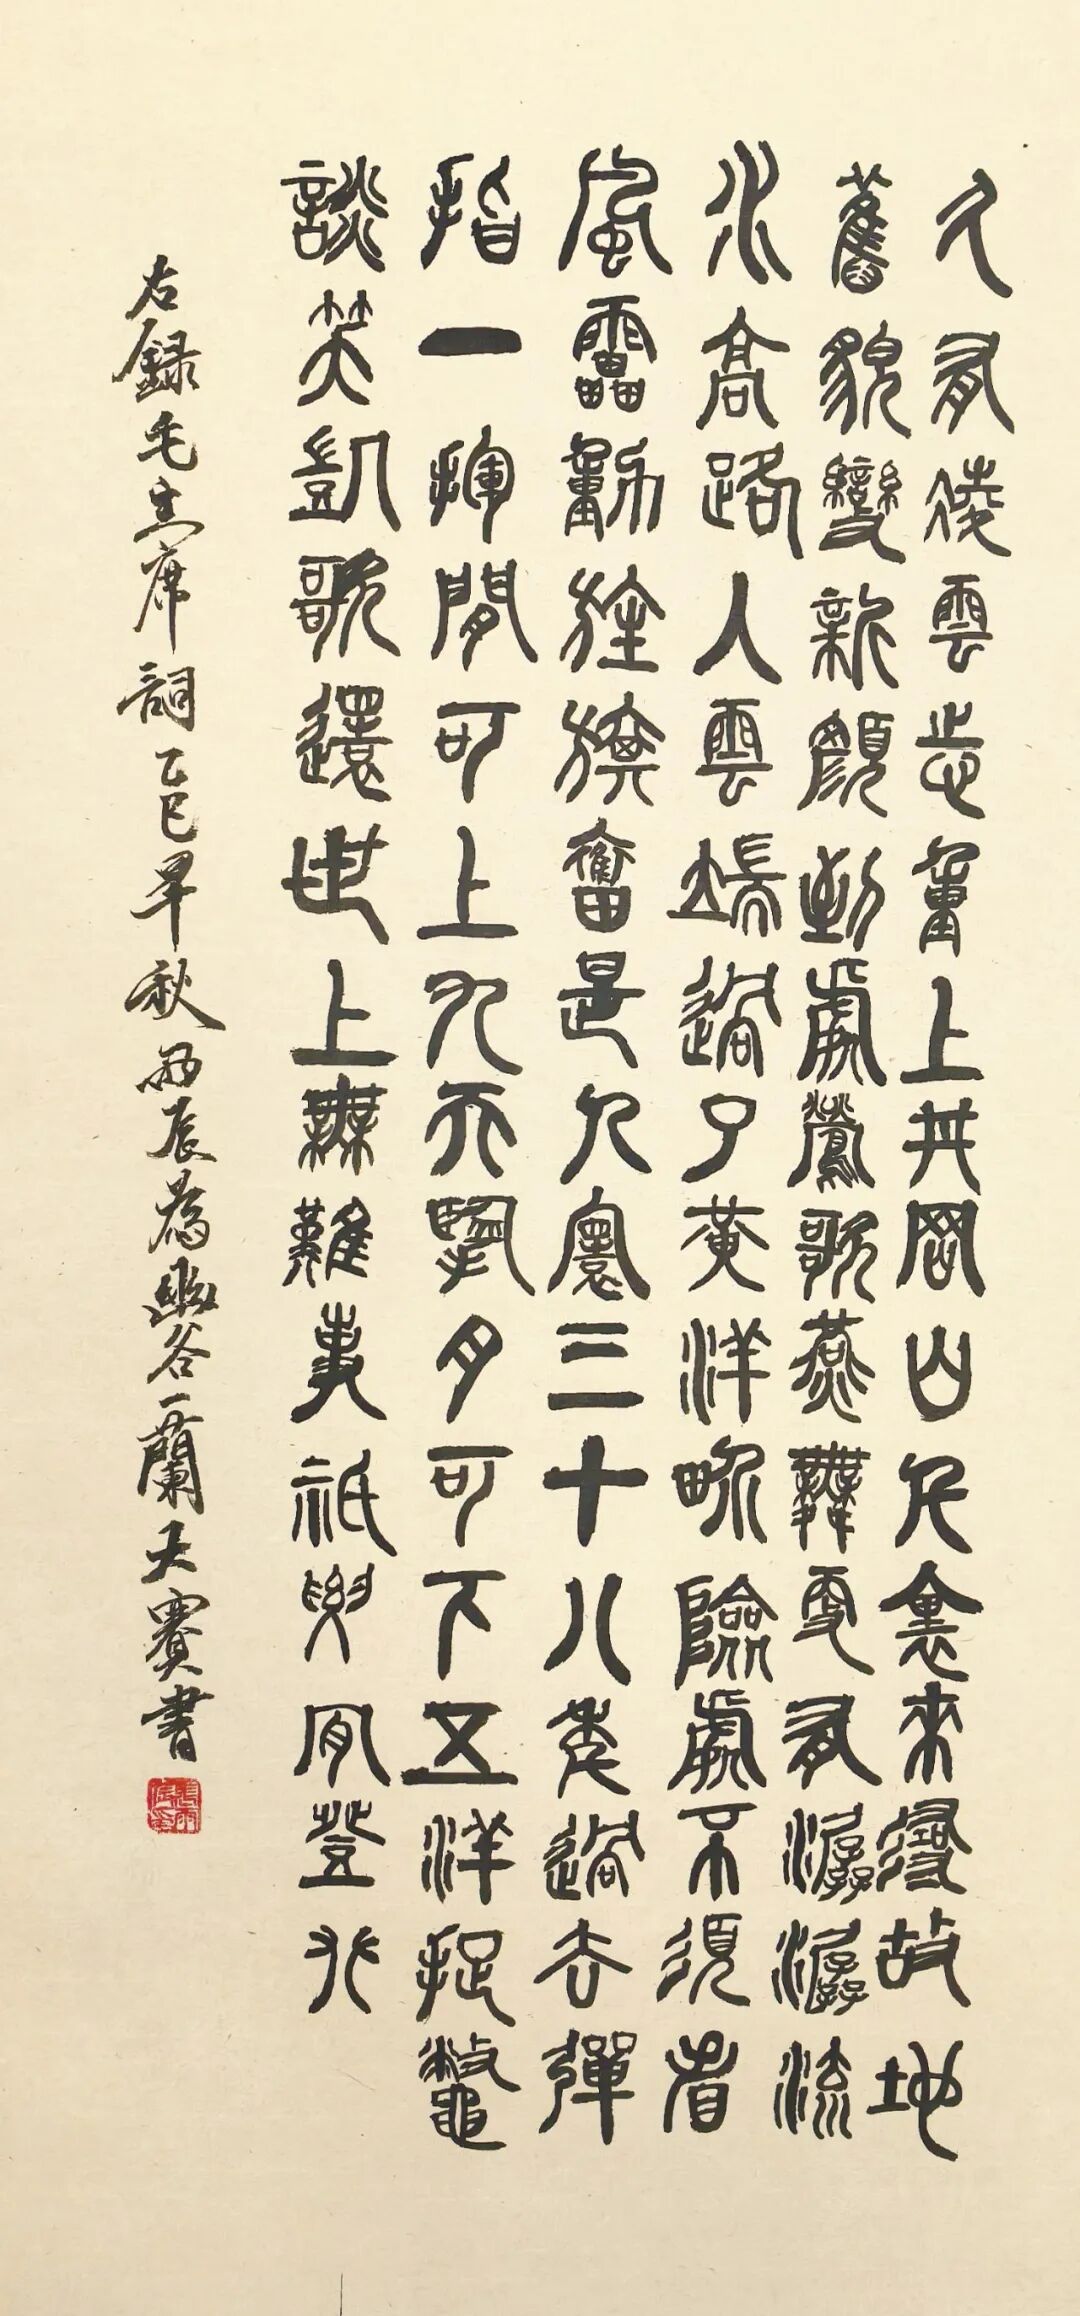 久有凌雲志重上井岡山千里來尋故地
舊貌變新顏到處鶯歌燕舞更有潺潺流
水高路入雲端過了黃洋界險處不須看
風雷動旌旗奮是人寰三十八年過去彈
指一揮間可上九天攬月可下五洋捉鱉
談笑凱歌還世上無難事祇要肯登攀
右録毛主席詞乙巳早秋雨辰為幽谷蘭大賽書